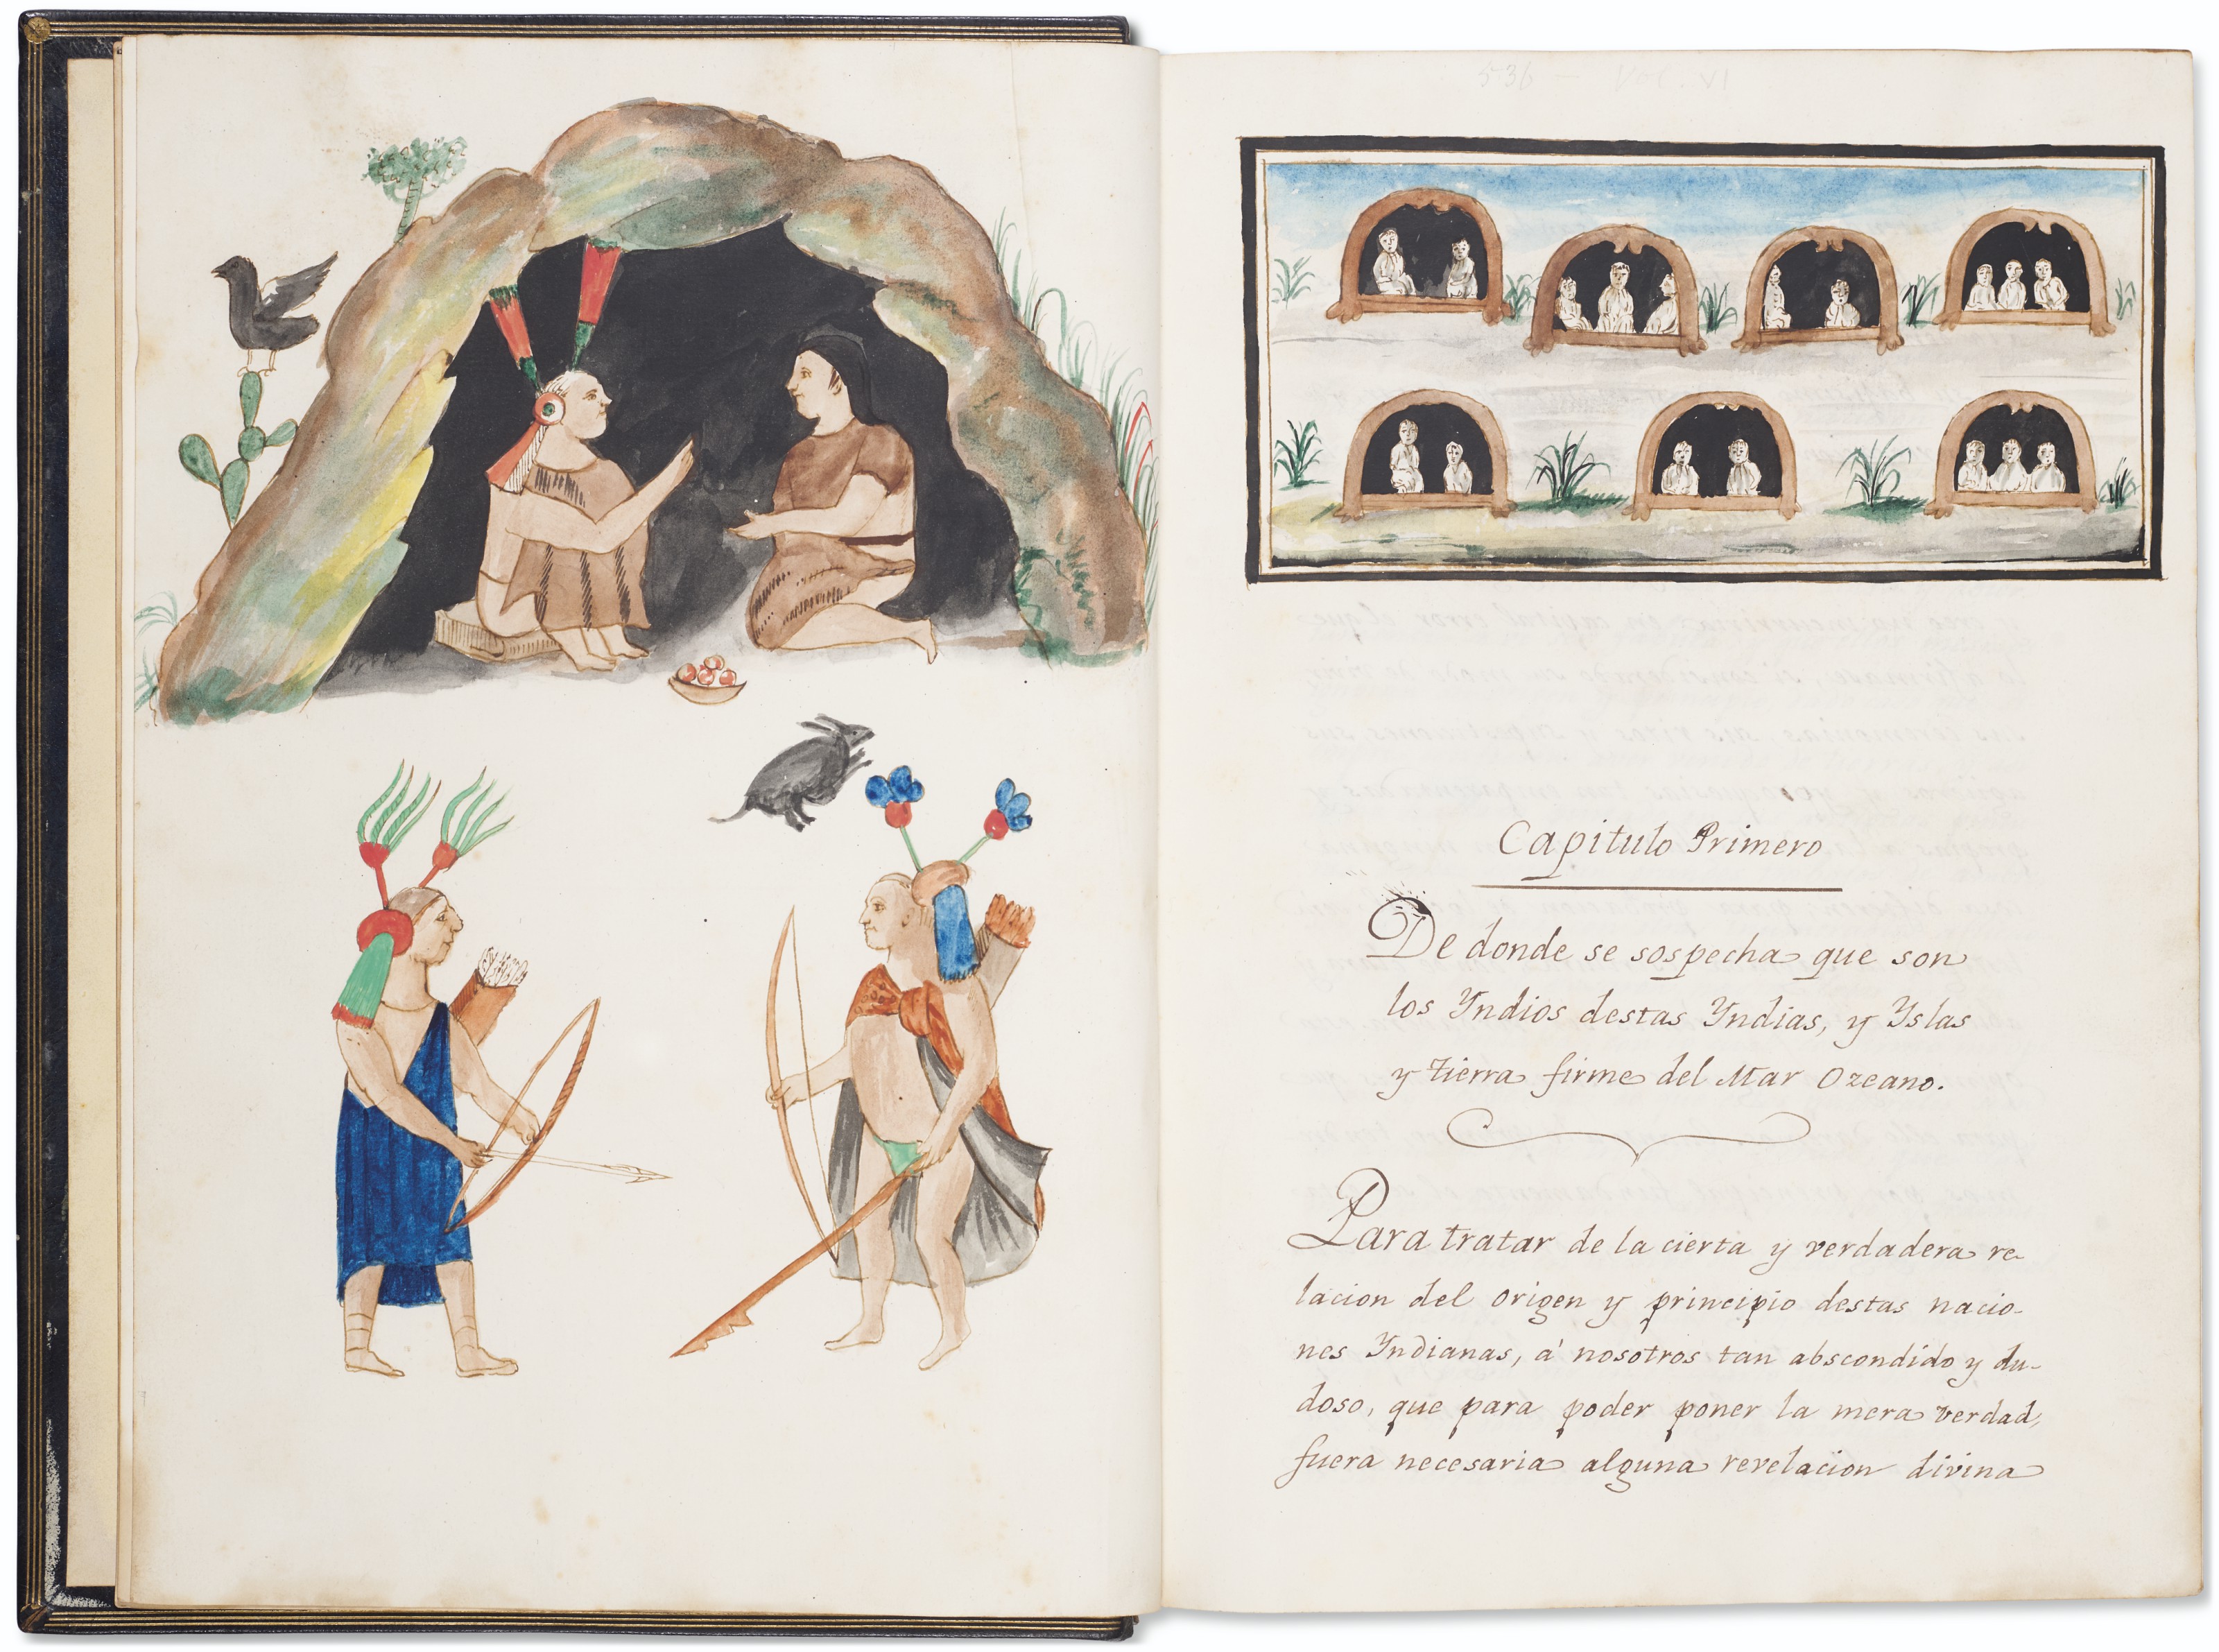 536 — Vol. VI
Capitulo Primero
De donde se sospecha que son
los Yndios destas Yndias, y Yslas
y tierra firme del Mar Ozeano.
Para tratar de la cierta y verdadera re-
lacion del origen y principio destas nacio-
nes Yndianas, á nosotros tan abscondido y du-
doso, que para poder poner la mera verdad,
fuera necesaria alguna revelacion divina